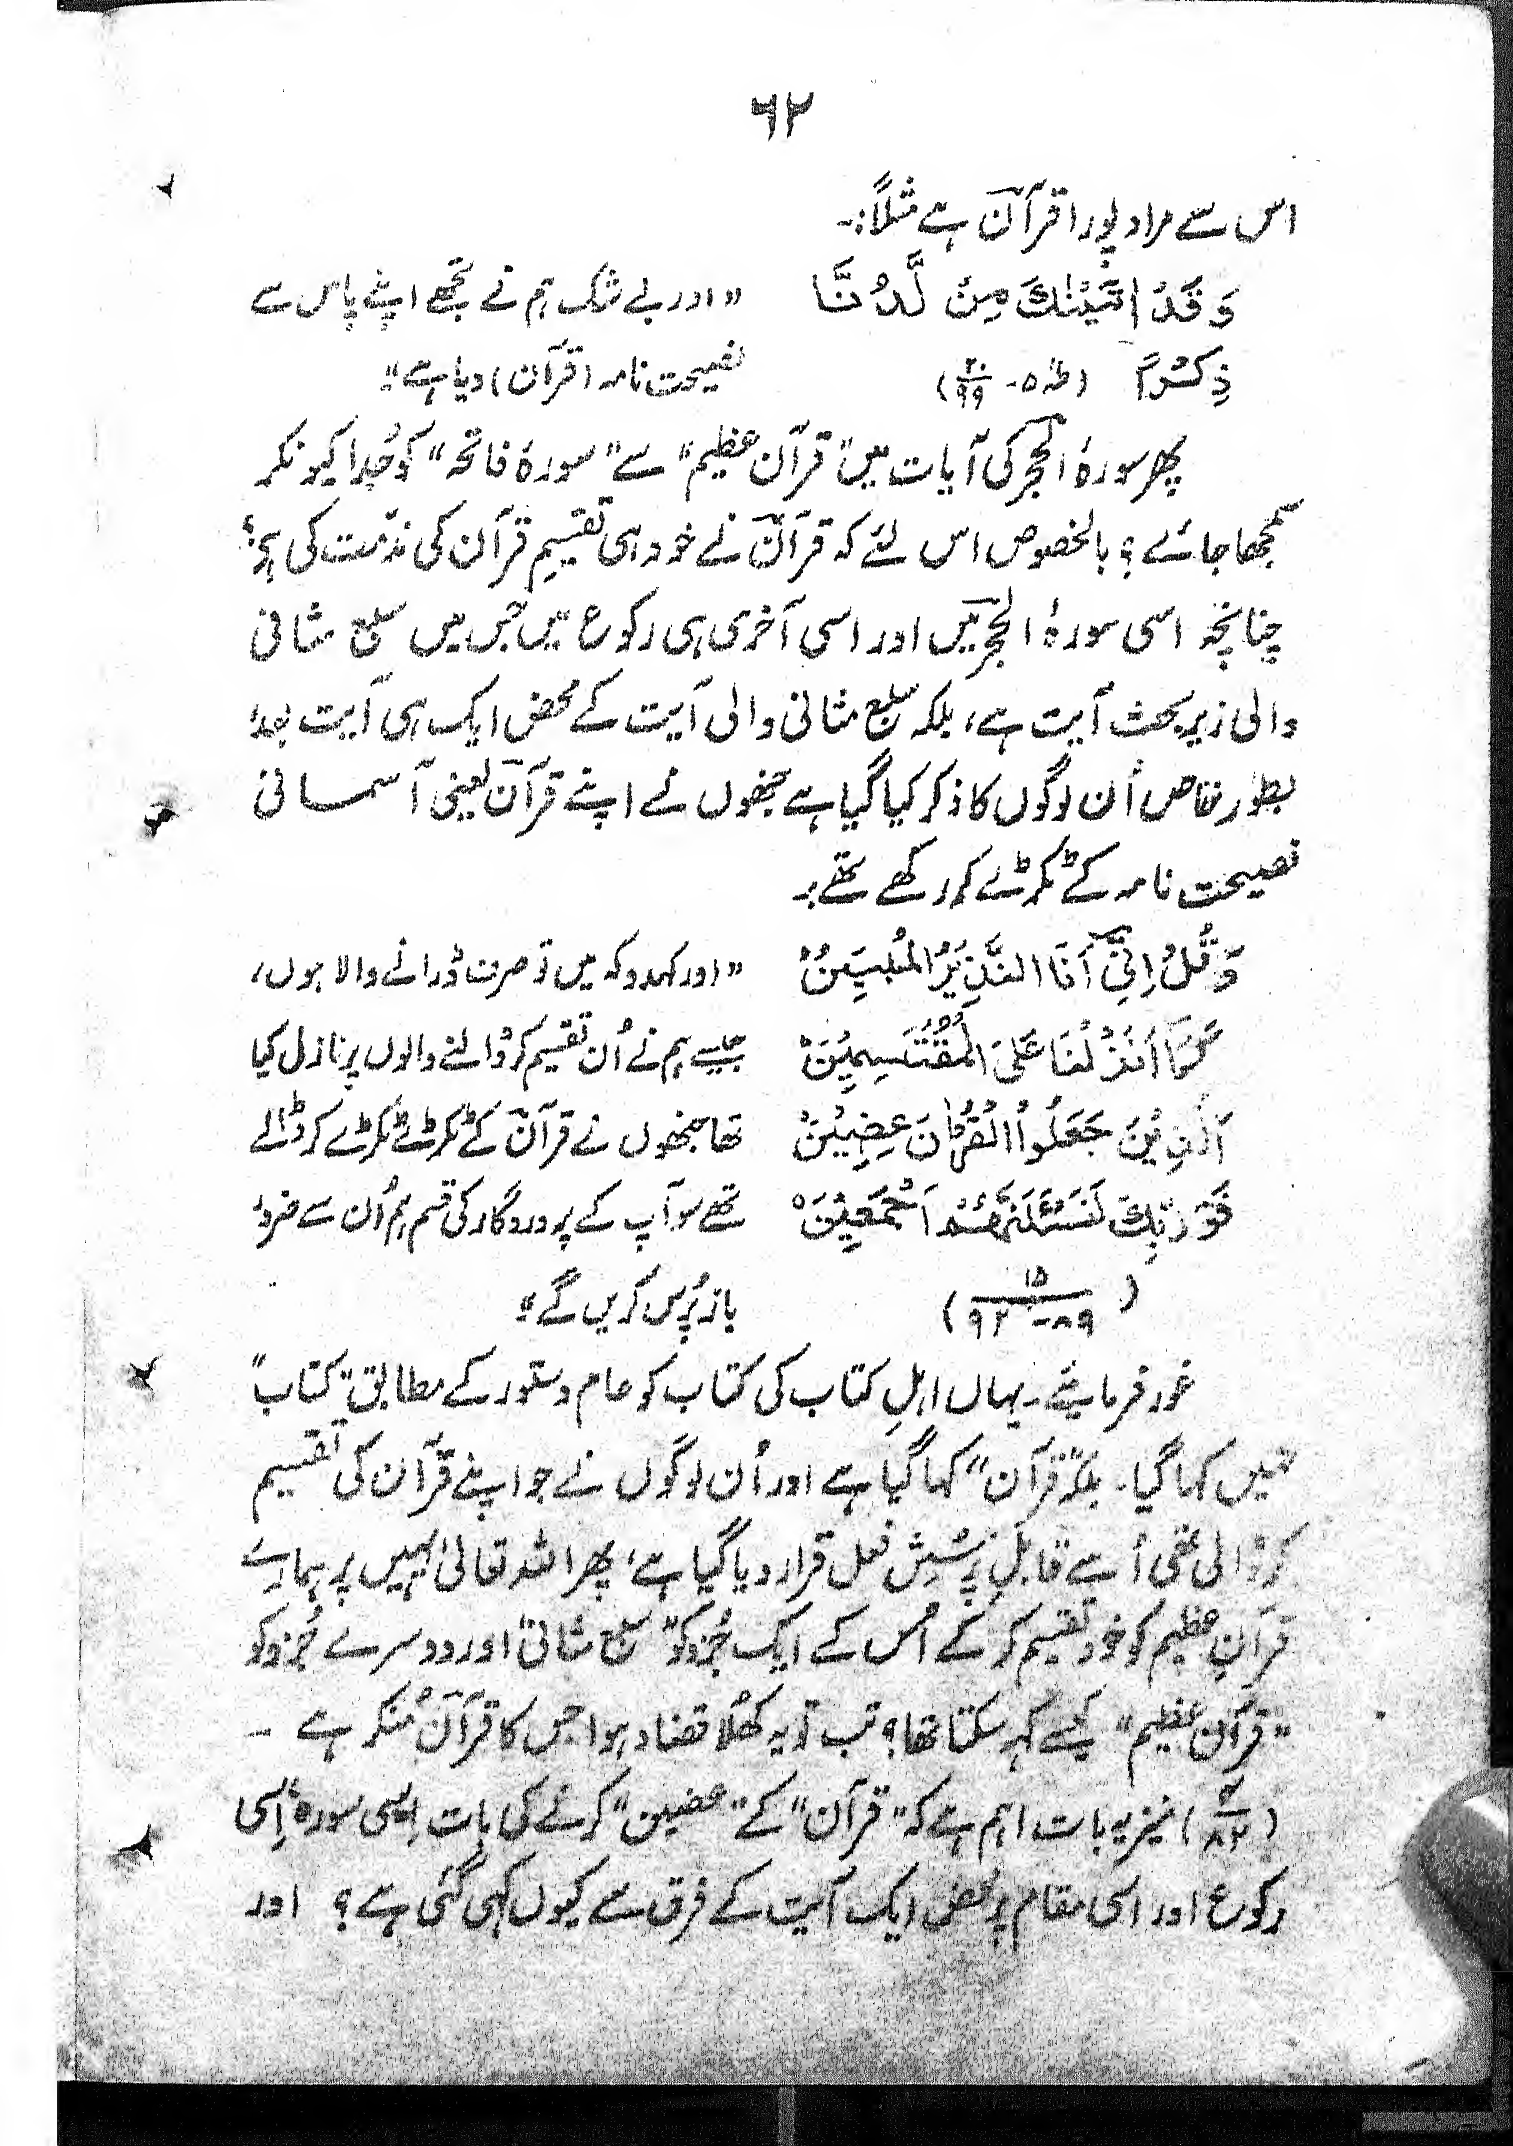 ۶۲
اس سے مراد پورا قرآن ہے مثلاً:-
وَقَدْ اٰتَيْنٰكَ مِنْ لَّدُنَّا
ذِكْرًا (طٰہٰ ۲۰/۹۹)
"اور بے شک ہم نے تجھے اپنے پاس سے
نصیحت نامہ (قرآن) دیا ہے"
پھر سورۂ الحجر کی آیات میں "قرآن عظیم" سے "سورۂ فاتحہ" کو جُدا کیونکر
سمجھا جائے؟ بالخصوص اس لئے کہ قرآن نے خود ہی تقسیمِ قرآن کی مذمت کی ہے؟
چنانچہ اسی سورۂ الحجر میں اور اسی آخری ہی رکوع میں جس میں سبع مثانی
والی زیر بحث آیت ہے، بلکہ سبع مثانی والی آیت کے محض ایک ہی آیت بعد،
بطور خاص اُن لوگوں کا ذکر کیا گیا ہے جنھوں نے اپنے قرآن یعنی آسمانی
نصیحت نامہ کے ٹکڑے کر رکھے تھے:-
وَقُلْ اِنِّيْٓ اَنَا النَّذِيْرُ الْمُبِيْنُ
كَمَآ اَنْزَلْنَا عَلَى الْمُقْتَسِمِيْنَ
الَّذِيْنَ جَعَلُوا الْقُرْاٰنَ عِضِيْنَ
فَوَرَبِّكَ لَنَسْئَلَنَّهُمْ اَجْمَعِيْنَ
(۱۵/۸۹-۹۲)
"اور کہدو کہ میں تو صرف ڈرانے والا ہوں،
جیسے ہم نے اُن تقسیم کر ڈالنے والوں پر نازل کیا
تھا جنھوں نے قرآن کے ٹکڑے ٹکڑے کر ڈالے
تھے سو آپ کے پروردگار کی قسم ہم اُن سے ضرور
باز پُرس کریں گے"
غور فرمائیے۔ یہاں اہلِ کتاب کی کتاب کو عام دستور کے مطابق "کتاب"
نہیں کہا گیا۔ بلکہ "قرآن" کہا گیا ہے اور اُن لوگوں نے جو اپنے قرآن کی تقسیم
کر ڈالی تھی اُسے قابلِ پرسش فعل قرار دیا گیا ہے، پھر اللہ تعالیٰ یہیں پر ہمارے
قرآن عظیم کو خود تقسیم کر کے اُس کے ایک جُزو کو "سبع مثانی" اور دوسرے جُزو کو
"قرآن عظیم" کیسے کہہ سکتا تھا؟ تب تو یہ کھُلا تضاد ہوا جس کا قرآن مُنکر ہے -
(۴/۸۲) نیز یہ بات اہم ہے کہ "قرآن" کے "عضین" کرنے کی بات اِسی سورہ، اِسی
رکوع اور اسی مقام پر محض ایک آیت کے فرق سے کیوں کہی گئی ہے؟ اور